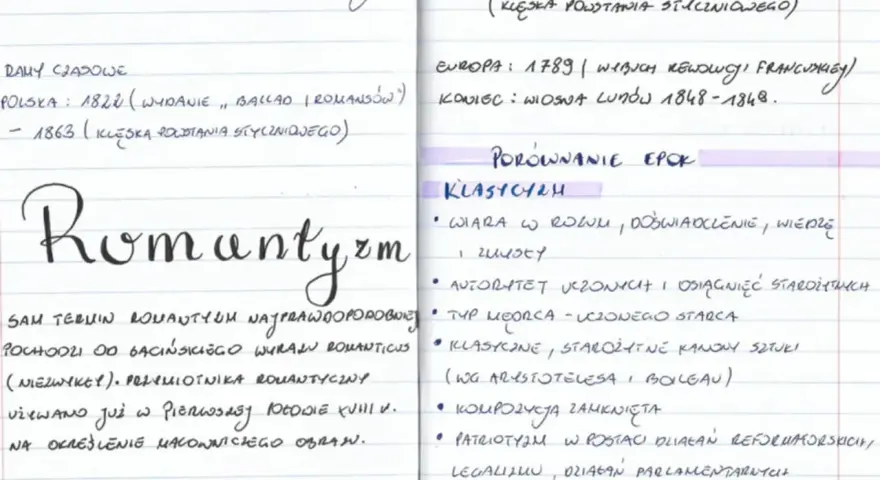 RAMY CZASOWE
POLSKA : 1822 ( WYDANIE „ BALLAD I ROMANSÓW")
- 1863 ( KLĘSKA POWSTANIA STYCZNIOWEGO)
Romantyzm
SAM TERMIN ROMANTYZM NAJPRAWDOPODOBNIEJ
POCHODZI OD ŁACIŃSKIEGO WYRAZU ROMANTICUS
( NIEZWYKŁY). PRZYMIOTNIKA ROMANTYCZNY
UŻYWANO JUŻ W PIERWSZEJ POŁOWIE XVIII W.
NA OKREŚLENIE MALOWNICZEGO OBRAZU.
( KLĘSKA POWSTANIA STYCZNIOWEGO)
EUROPA : 1789 ( WYBUCH REWOLUCJI FRANCUSKIEJ)
KONIEC : WIOSNA LUDÓW 1848 - 1849.
PORÓWNANIE EPOK
KLASYCYZM
• WIARA W ROZUM , DOŚWIADCZENIE , WIEDZĘ
I ZMYSŁY
• AUTORYTET UCZONYCH I OSIĄGNIĘĆ STAROŻYTNYCH
• TYP MĘDRCA - UCZONEGO STARCA
• KLASYCZNE , STAROŻYTNE KANONY SZTUKI
( WG ARYSTOTELESA I BOILEAU )
• KOMPOZYCJA ZAMKNIĘTA
• PATRIOTYZM W POSTACI DZIAŁAŃ REFORMATORSKICH,
LEGALIZMU , DZIAŁAŃ PARLAMENTARNYCH